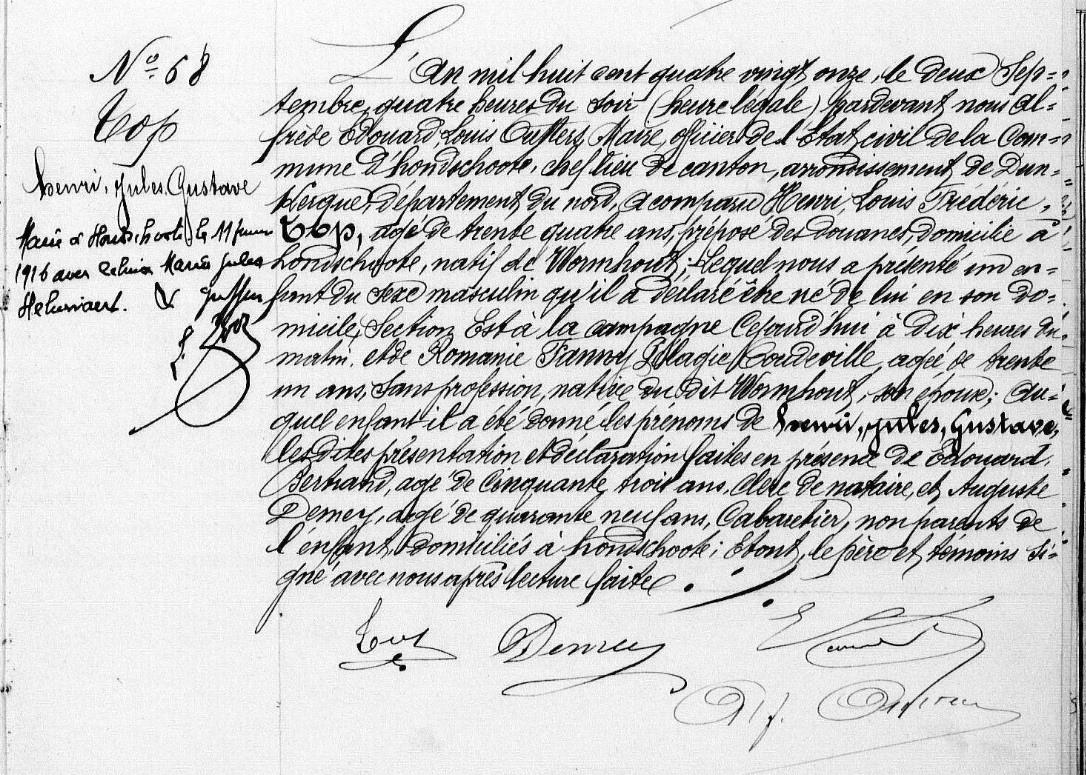 No 68
Top
henri, Jules, Gustave
Marié à Hondschoote le 11
1916 avec Marie Jules
L'An mil huit cent quatre vingt onze, le deux Sep-
tembre, quatre heures du soir (heure légale) pardevant nous Al-
frède Edouard, Louis Maire, officier de l'Etat civil de la Com-
mune d'hondschoote, chef lieu de canton, arrondissement de Dun-
kerque, département du nord, a comparu Henri, Louis Frédéric,
Top, agé de trente quatre ans, préposé des douanes, domicilié à
hondschoote, natif de Wormhout; lequel nous a présenté un en-
fant du sexe masculin qu'il a déclaré être né de lui en son do-
micile, Section Est à la campagne Cejourd'hui à dix heures du
matin, et de Romanie Fanny Pélagie agée de trente
un ans, sans profession, native du dit Wormhout, son épouse; au-
quel enfant il a été donné les prénoms de henri, Jules, Gustave,
les dites présentation et déclaration faites en présence de Edouard,
Bertrand, agé de Cinquante trois ans, Clerc de notaire, et Auguste
Demey, agé de quarante neuf ans, Cabaretier, non parents de
l'enfant, domiciliés à hondschoote; Et ont, le père et témoins si-
gné avec nous après lecture faite.
Top Demey
Alf.